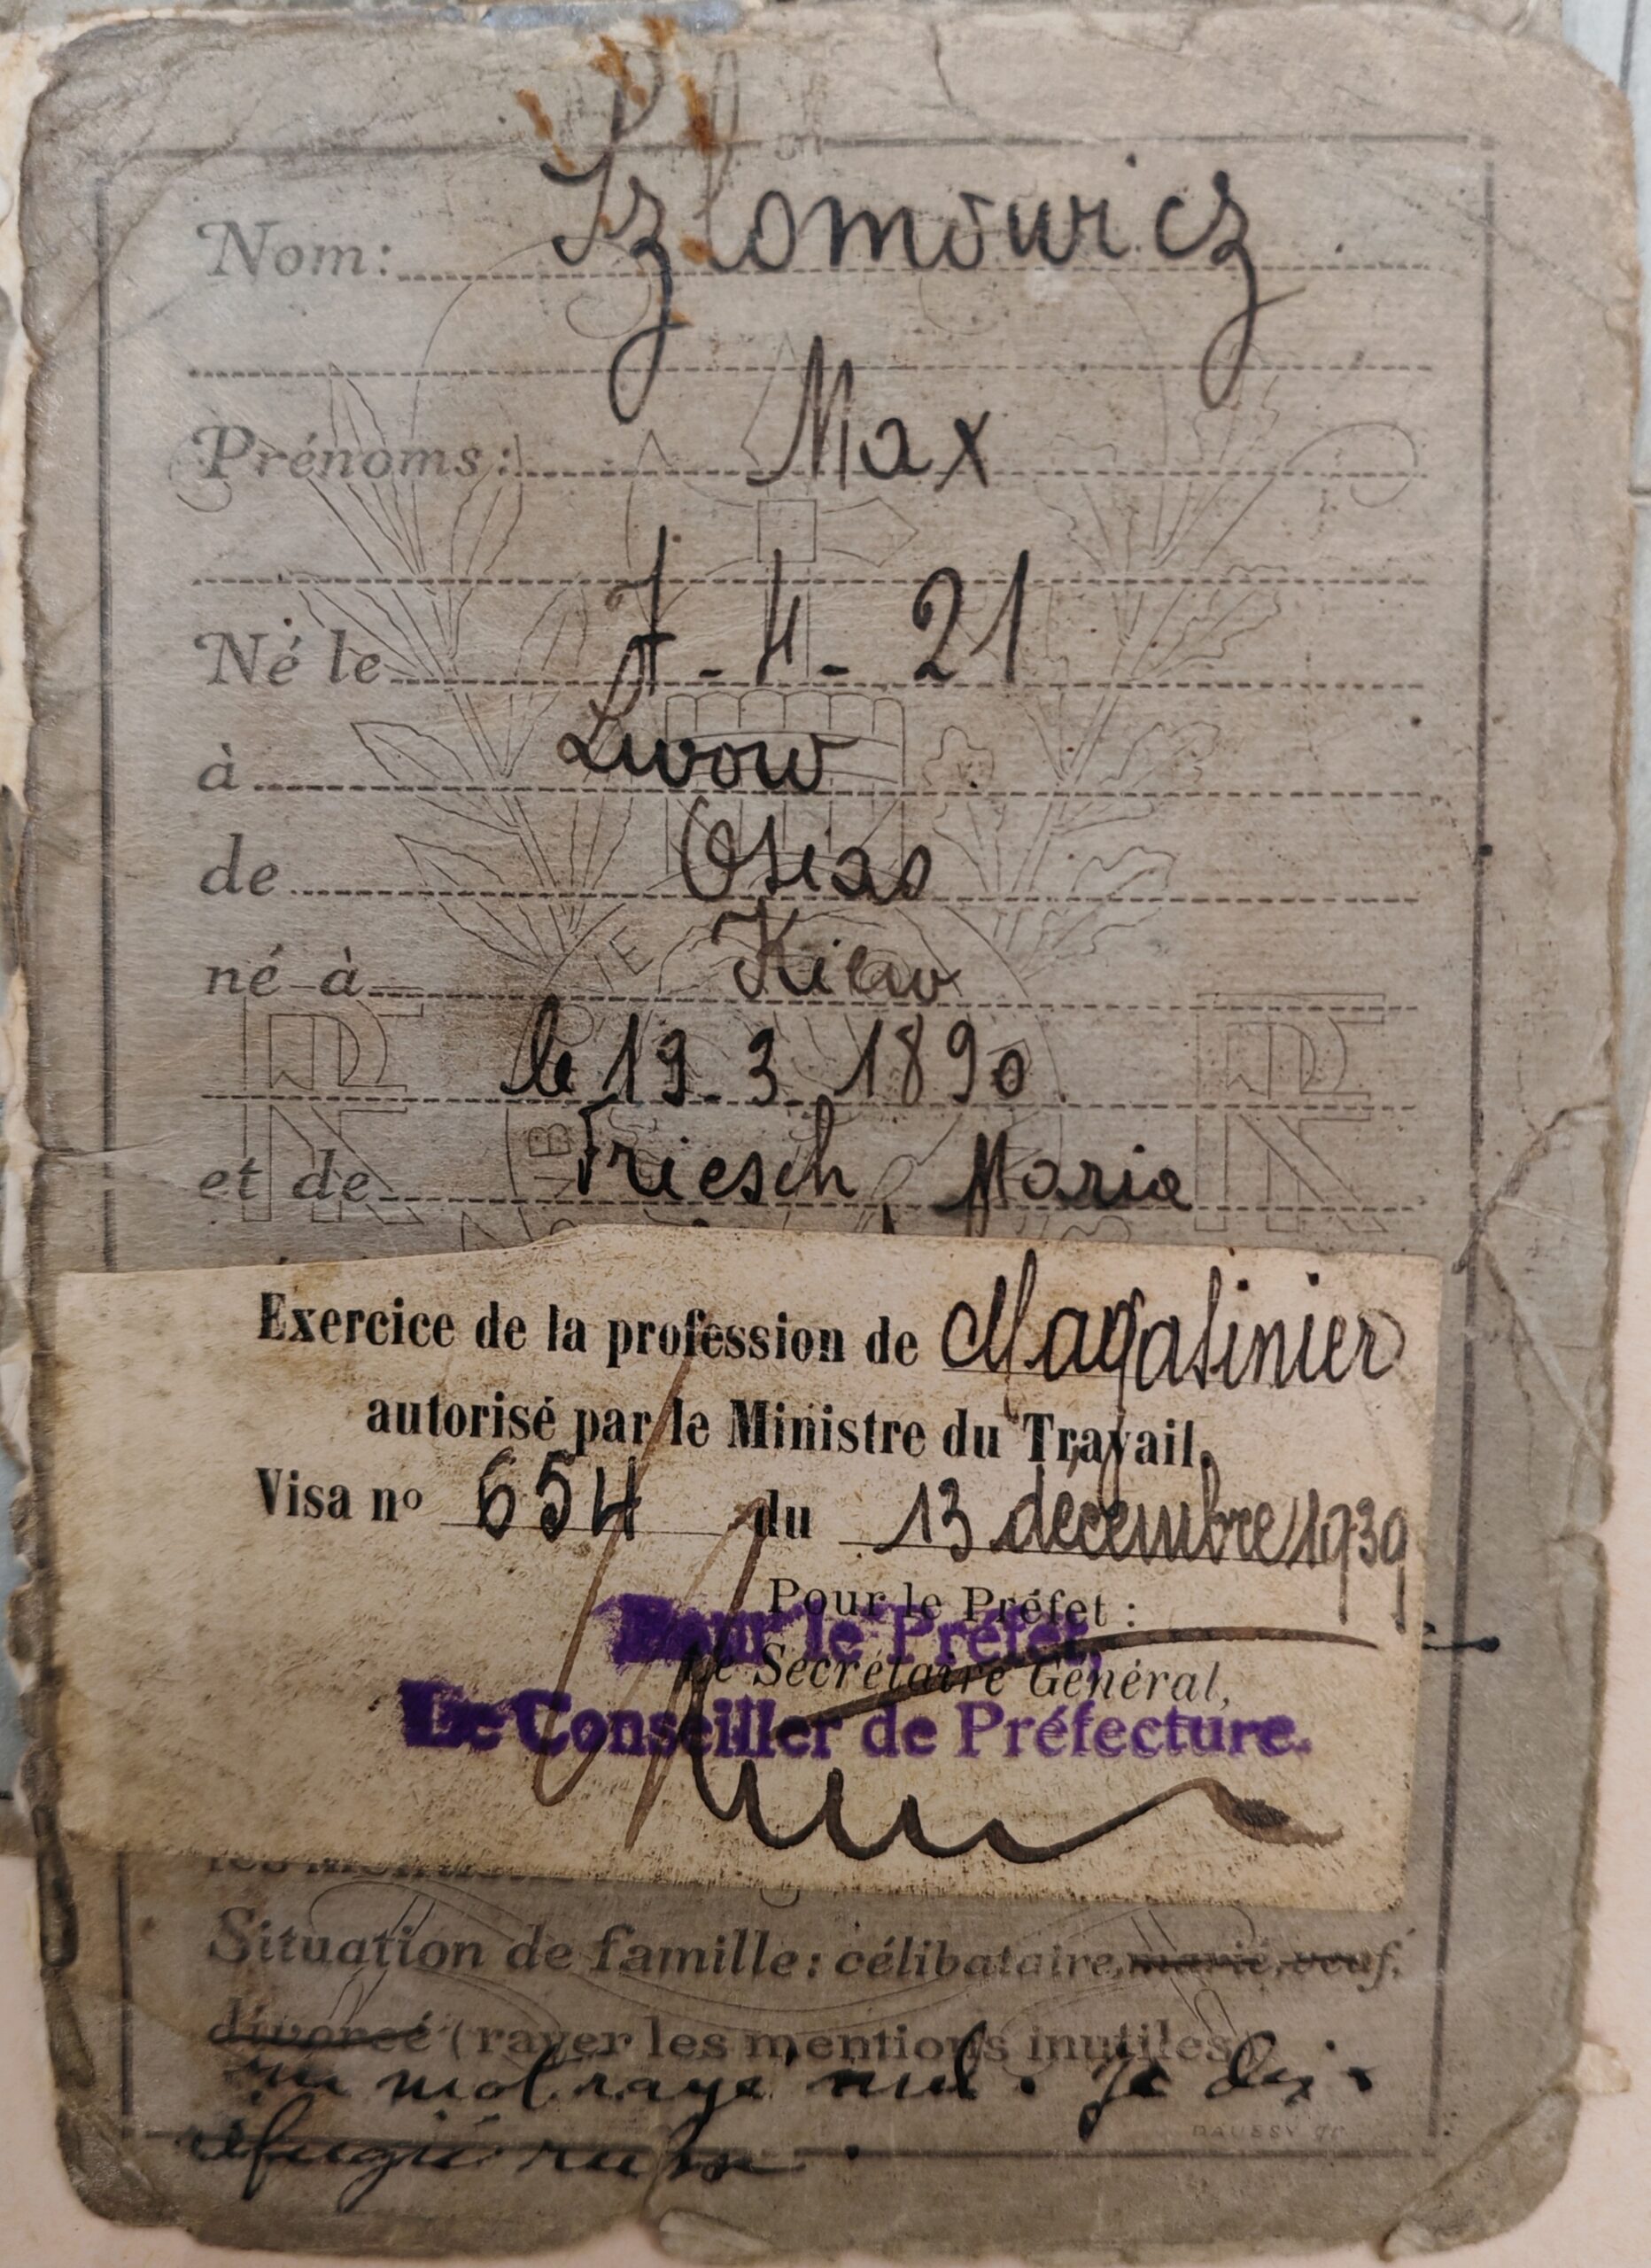 Nom: Szlomowicz
Prénoms: Max
Né le 7-4-21
à Lwow
de Osias
né à Kiew
le 19.3.1890
et de Friesch Maria
Exercice de la profession de Magasinier
autorisé par le Ministre du Travail.
Visa nº 654 du 13 décembre 1939
Pour le Préfet :
Pour le Préfet,
Le Secrétaire Général,
Le Conseiller de Préfecture.
Situation de famille: célibataire, marié, veuf,
divorcé (rayer les mentions inutiles)
un mot rayé nul. Je dis.
réfugié russe.
DAUSSY gr